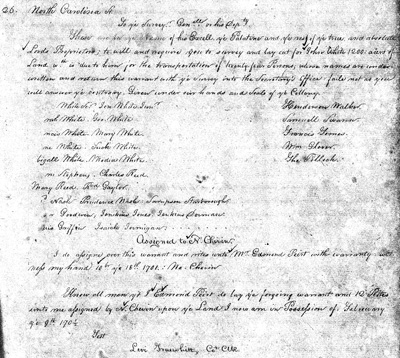 26. North Carolina Sc.
To ye Survey. Genll. or his Depty.
These are in ye Name of his Excell. ye Palatine and ye rest of ye true and absolute
Lords Proprietors, to will and require you to survey and lay out for John White 1200 acres of
Land it is due to him for the transportation of twenty four Persons, whose names are under
written and return this warrant with ye Survey into the Secretary's Office fail not as you
will answer ye contrary. Given under our hands and Seals of ye Collony.
White Jr. Jon. White Senr. Henderson Walker
White, Geo. White Samuell Swann
White, Mary White Francis Tomes
White, Luck White Wm. Glover
White, Medias White Tho. Pollock
Stephens, Charles Reed
Mary Reed, Rd. Taylor
Nash, Prudence Nash, Sampson
Gordwin, Jenkins Jones
Griffin
Assigned to N. Chevin
I do assigne over this warrant and rites unto Mr. Edmond Peirt with warranty wit-
ness my hand 10th ye 1702: Na: Chevin
Know all men yt I Edmond Peirt do lay ye forgoing warrant and
unto me assigned by N. Chevin upon ye Land I now am in Possession of February
ye 9th 1704
Test
Levi Truewhitt, Co. Clk